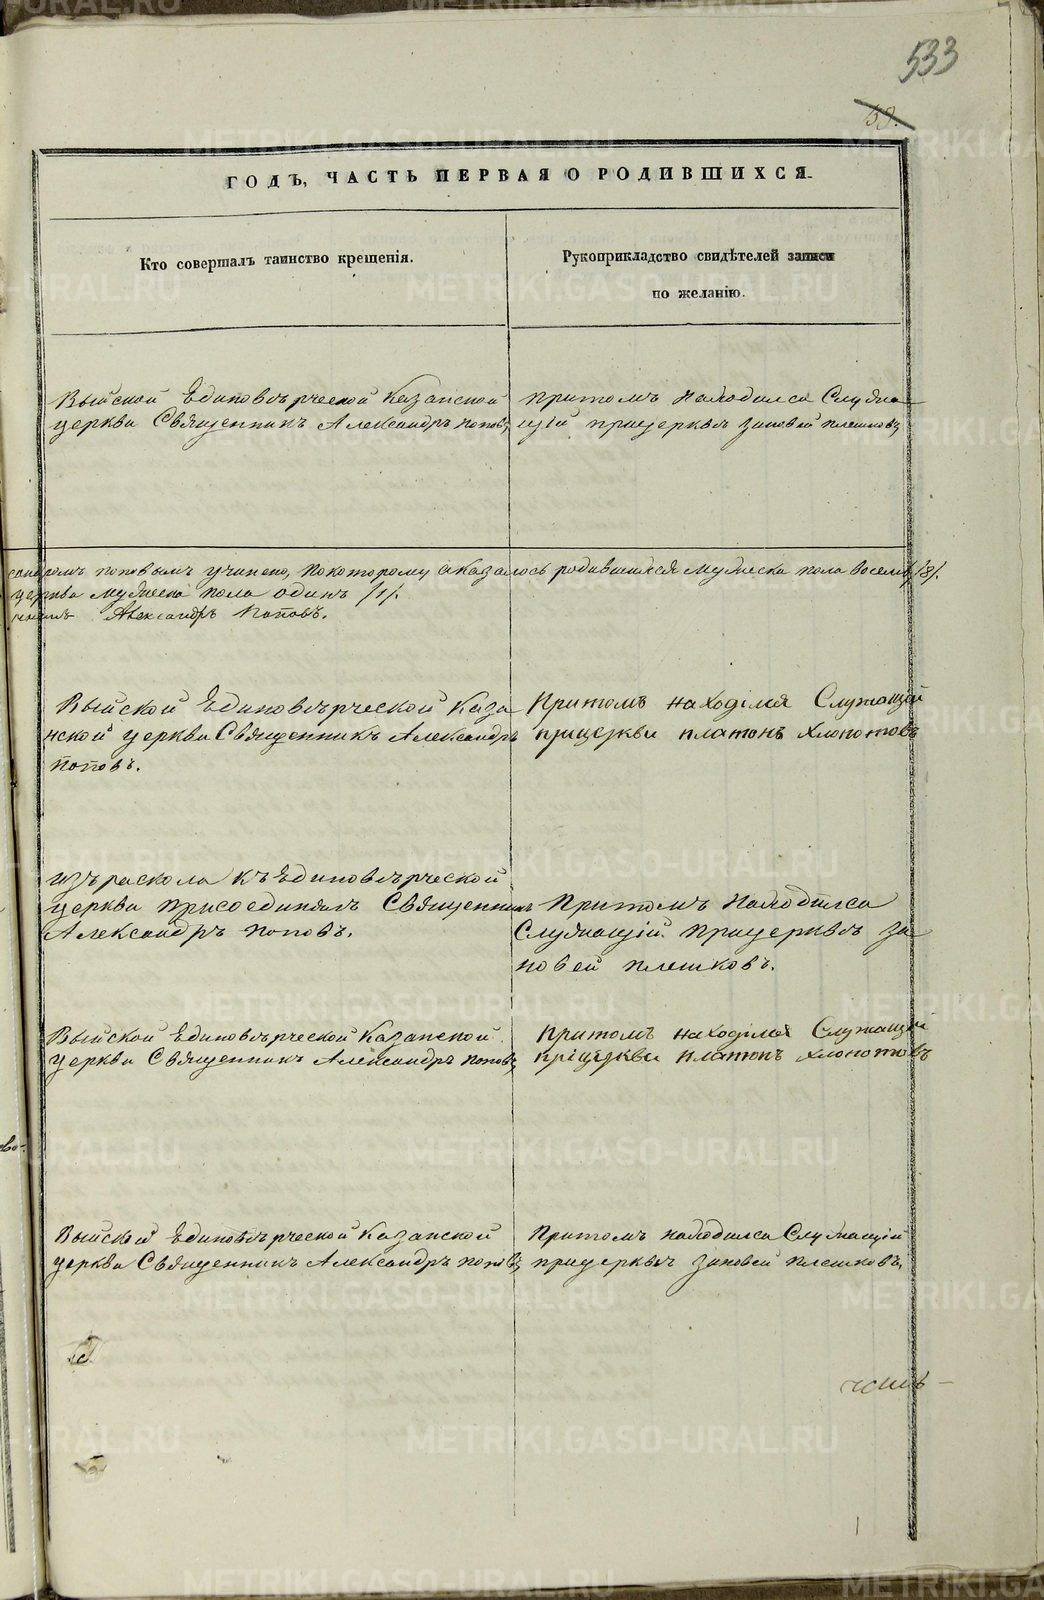 533
59.
ГОДЪ, ЧАСТЬ ПЕРВАЯ О РОДИВШИХСЯ.
Кто совершалъ таинство крещенія.
Рукоприкладство свидѣтелей записи
по желанію.
Выйской Единовѣрческой Казанской
церкви Священникъ Александръ Поповъ
Притомъ находился Служа-
щій прицерквѣ Зиновей Плешковъ
сандромъ Поповымъ учинено, покоторому оказалось родившихся мужеска пола восемь /8/.
церкви мужеска пола одинъ /1/.
Александръ Поповъ.
Выйской Единовѣрческой Каза
нской церкви Священникъ Александръ
Поповъ.
Притомъ находілся Служащій
прицеркви платонъ Хлопотовъ
изъ раскола къ Единовѣрческой
церкви присоединялъ Священникъ
Александръ Поповъ.
Притомъ Находился
Служащій прицерквѣ Зи
новей Плешковъ.
Выйской Единовѣрческой Казанской
церкви Священникъ Александръ Поповъ
притомъ находілся Служащій
пріцеркви платонъ Хлопотовъ
Выйской Единовѣрческой Казанской
церкви Священникъ Александръ Поповъ
Притомъ находился Служащій
прицерквѣ Зиновей Плешковъ.
METRIKI.GASO-URAL.RU